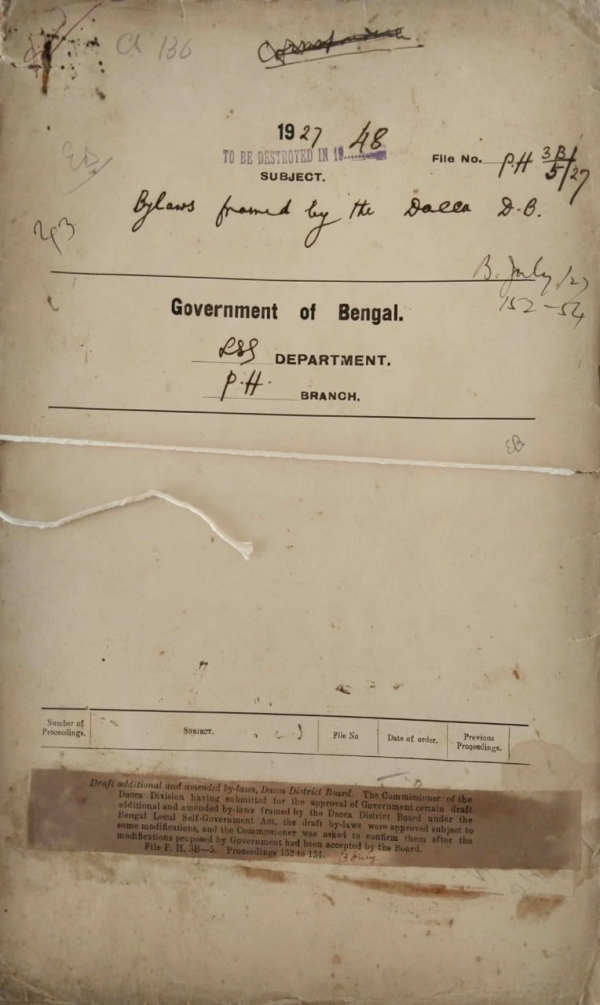 Cl 136
1927 48
TO BE DESTROYED IN 19
File No. PH 3B/5/27
SUBJECT.
Bylaws framed by the Dacca D.B.
B. July /27
152-54
Government of Bengal.
LSG DEPARTMENT.
P.H. BRANCH.
Number of Proceedings.
SUBJECT.
File No
Date of order.
Previous Proceedings.
Draft additional and amended by-laws, Dacca District Board. The Commissioner of the
Dacca Division having submitted for the approval of Government certain draft
additional and amended by-laws framed by the Dacca District Board under the
Bengal Local Self-Government Act, the draft by-laws were approved subject to
some modifications, and the Commissioner was asked to confirm them after the
modifications proposed by Government had been accepted by the Board.
File P. H. 3B—5. Proceedings 152 to 154. B July